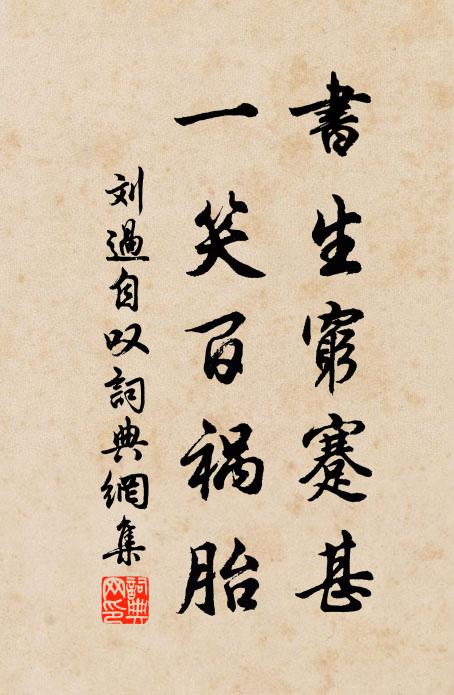 書生窮蹇甚
一笑百祸胎
刘過自叹詞典網集
詞典網印